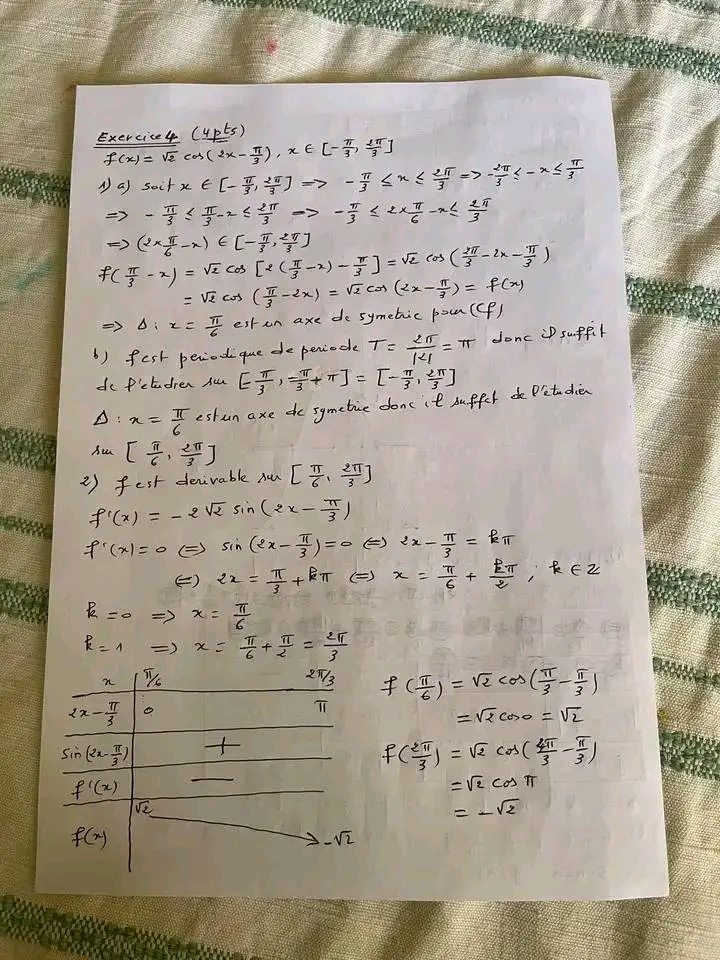 Exercice 4 (4pts)
f(x) = √2 cos(2x - π/3), x ∈ [-π/3, 2π/3]
1) a) soit x ∈ [-π/3, 2π/3] => -π/3 ≤ x ≤ 2π/3 => -2π/3 ≤ -x ≤ π/3
=> -π/3 ≤ π/3 - x ≤ 2π/3 => -π/3 ≤ 2×π/6 - x ≤ 2π/3
=> (2×π/6 - x) ∈ [-π/3, 2π/3]
f(π/3 - x) = √2 cos [2(π/3 - x) - π/3] = √2 cos (2π/3 - 2x - π/3)
= √2 cos (π/3 - 2x) = √2 cos (2x - π/3) = f(x)
=> Δ : x = π/6 est un axe de symetrie pour (Cf)
b) f est periodique de periode T = 2π/|2| = π donc il suffit
de l'etudier sur [-π/3, -π/3 + π] = [-π/3, 2π/3]
Δ : x = π/6 est un axe de symetrie donc il suffit de l'étudier
sur [π/6, 2π/3]
2) f est derivable sur [π/6, 2π/3]
f'(x) = -2√2 sin(2x - π/3)
f'(x) = 0 <=> sin(2x - π/3) = 0 <=> 2x - π/3 = kπ
<=> 2x = π/3 + kπ <=> x = π/6 + kπ/2 ; k ∈ Z
k = 0 => x = π/6
k = 1 => x = π/6 + π/2 = 2π/3
x π/6 2π/3
2x - π/3 0 π
sin(2x - π/3) +
f'(x) —
f(x) √2 → -√2
f(π/6) = √2 cos(π/3 - π/3)
= √2 cos 0 = √2
f(2π/3) = √2 cos(4π/3 - π/3)
= √2 cos π
= -√2